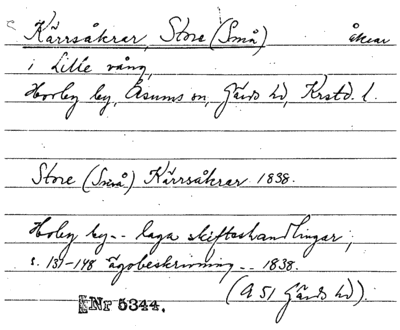 Kärrsåkrar, Store (Små) åkrar
i Lille vång,
Horby by, Åsums sn, Gärds hd, Krstd. l.
Store (Små) Kärrsåkrar 1838.
Hoby by -- laga skifteshandlingar,
s. 137-148 ägobeskrivning -- 1838.
(A 51 Gärds hd).
Nr 5344.